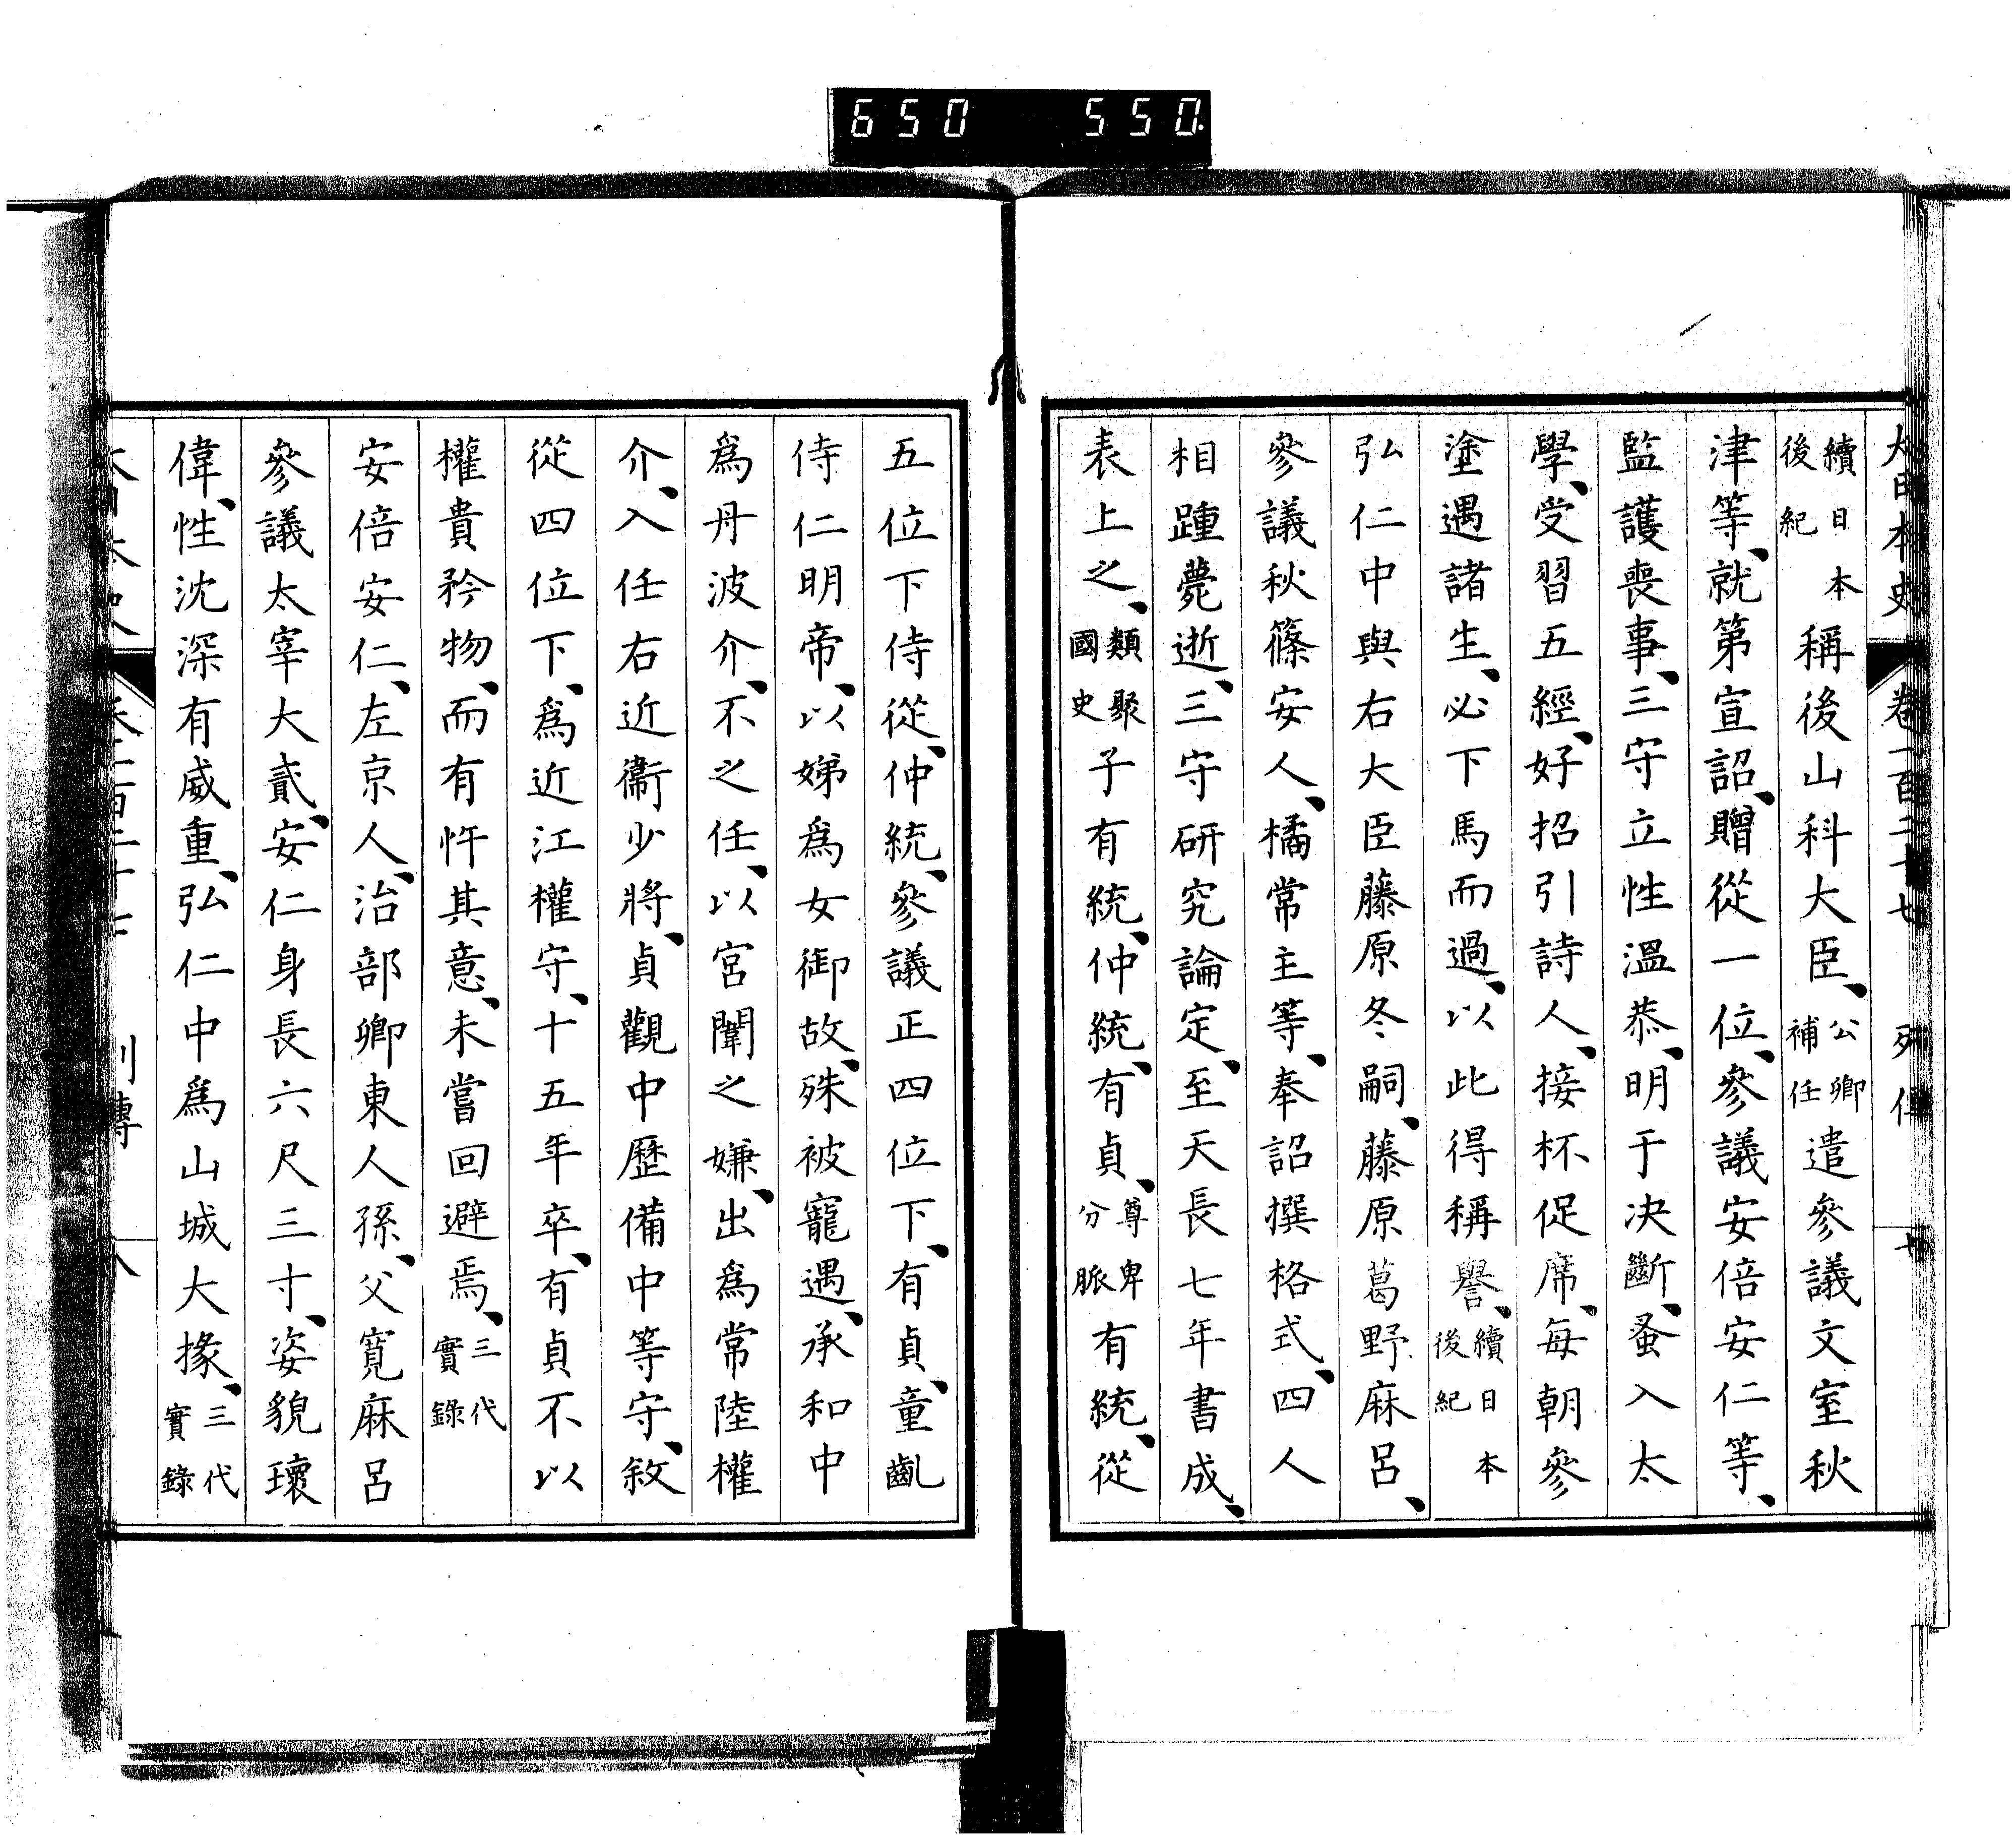 650 550
大日本史 卷一百二十七 列傳
續日本後紀稱後山科大臣、公卿補任遣參議文室秋
津等、就第宣詔、贈從一位、參議安倍安仁等、
監護喪事、三守立性溫恭、明于决斷、蚤入太
學、受習五經、好招引詩人、接杯促席、每朝參
塗遇諸生、必下馬而過、以此得稱譽、續日本後紀
弘仁中與右大臣藤原冬嗣、藤原葛野麻呂、
參議秋篠安人、橘常主等、奉詔撰格式、四人
相踵薨逝、三守研究論定、至天長七年書成、
表上之、類聚國史子有統、仲統、有貞、尊卑分脈有統、從
五位下侍從、仲統、參議正四位下、有貞、童齓
侍仁明帝、以娣爲女御故、殊被寵遇、承和中
爲丹波介、不之任、以宮闈之嫌、出爲常陸權
介、入任右近衞少將、貞觀中歷備中等守、敘
從四位下、爲近江權守、十五年卒、有貞不以
權貴矜物、而有忤其意、未嘗回避焉、三代實錄
安倍安仁、左京人、治部卿東人孫、父寬麻呂
參議太宰大貳、安仁身長六尺三寸、姿貌瓌
偉、性沈深有威重、弘仁中爲山城大掾、三代實錄